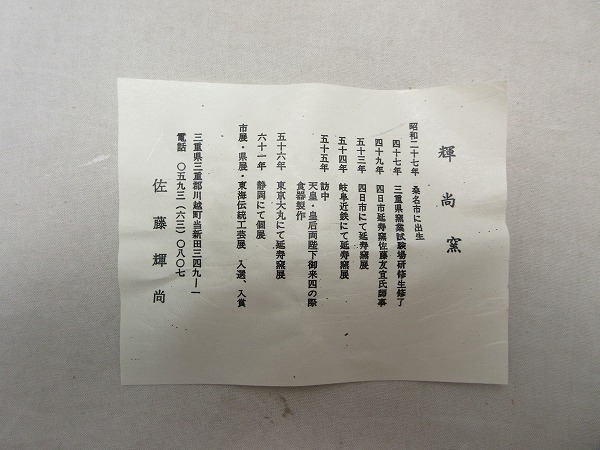 輝尚窯
昭和二十七年 桑名市に出生
四十七年 三重県窯業試験場研修生修了
四十九年 四日市延寿窯佐藤友宜氏師事
五十三年 四日市にて延寿窯展
五十四年 岐阜近鉄にて延寿窯展
五十五年 訪中
天皇・皇后両陛下御来四の際
食器製作
五十六年 東京大丸にて延寿窯展
六十一年 静岡にて個展
市展・県展・東海伝統工芸展 入選、入賞
三重県三重郡川越町当新田三四九ー一
電話 〇五九三(六三)〇八〇七
佐藤輝尚